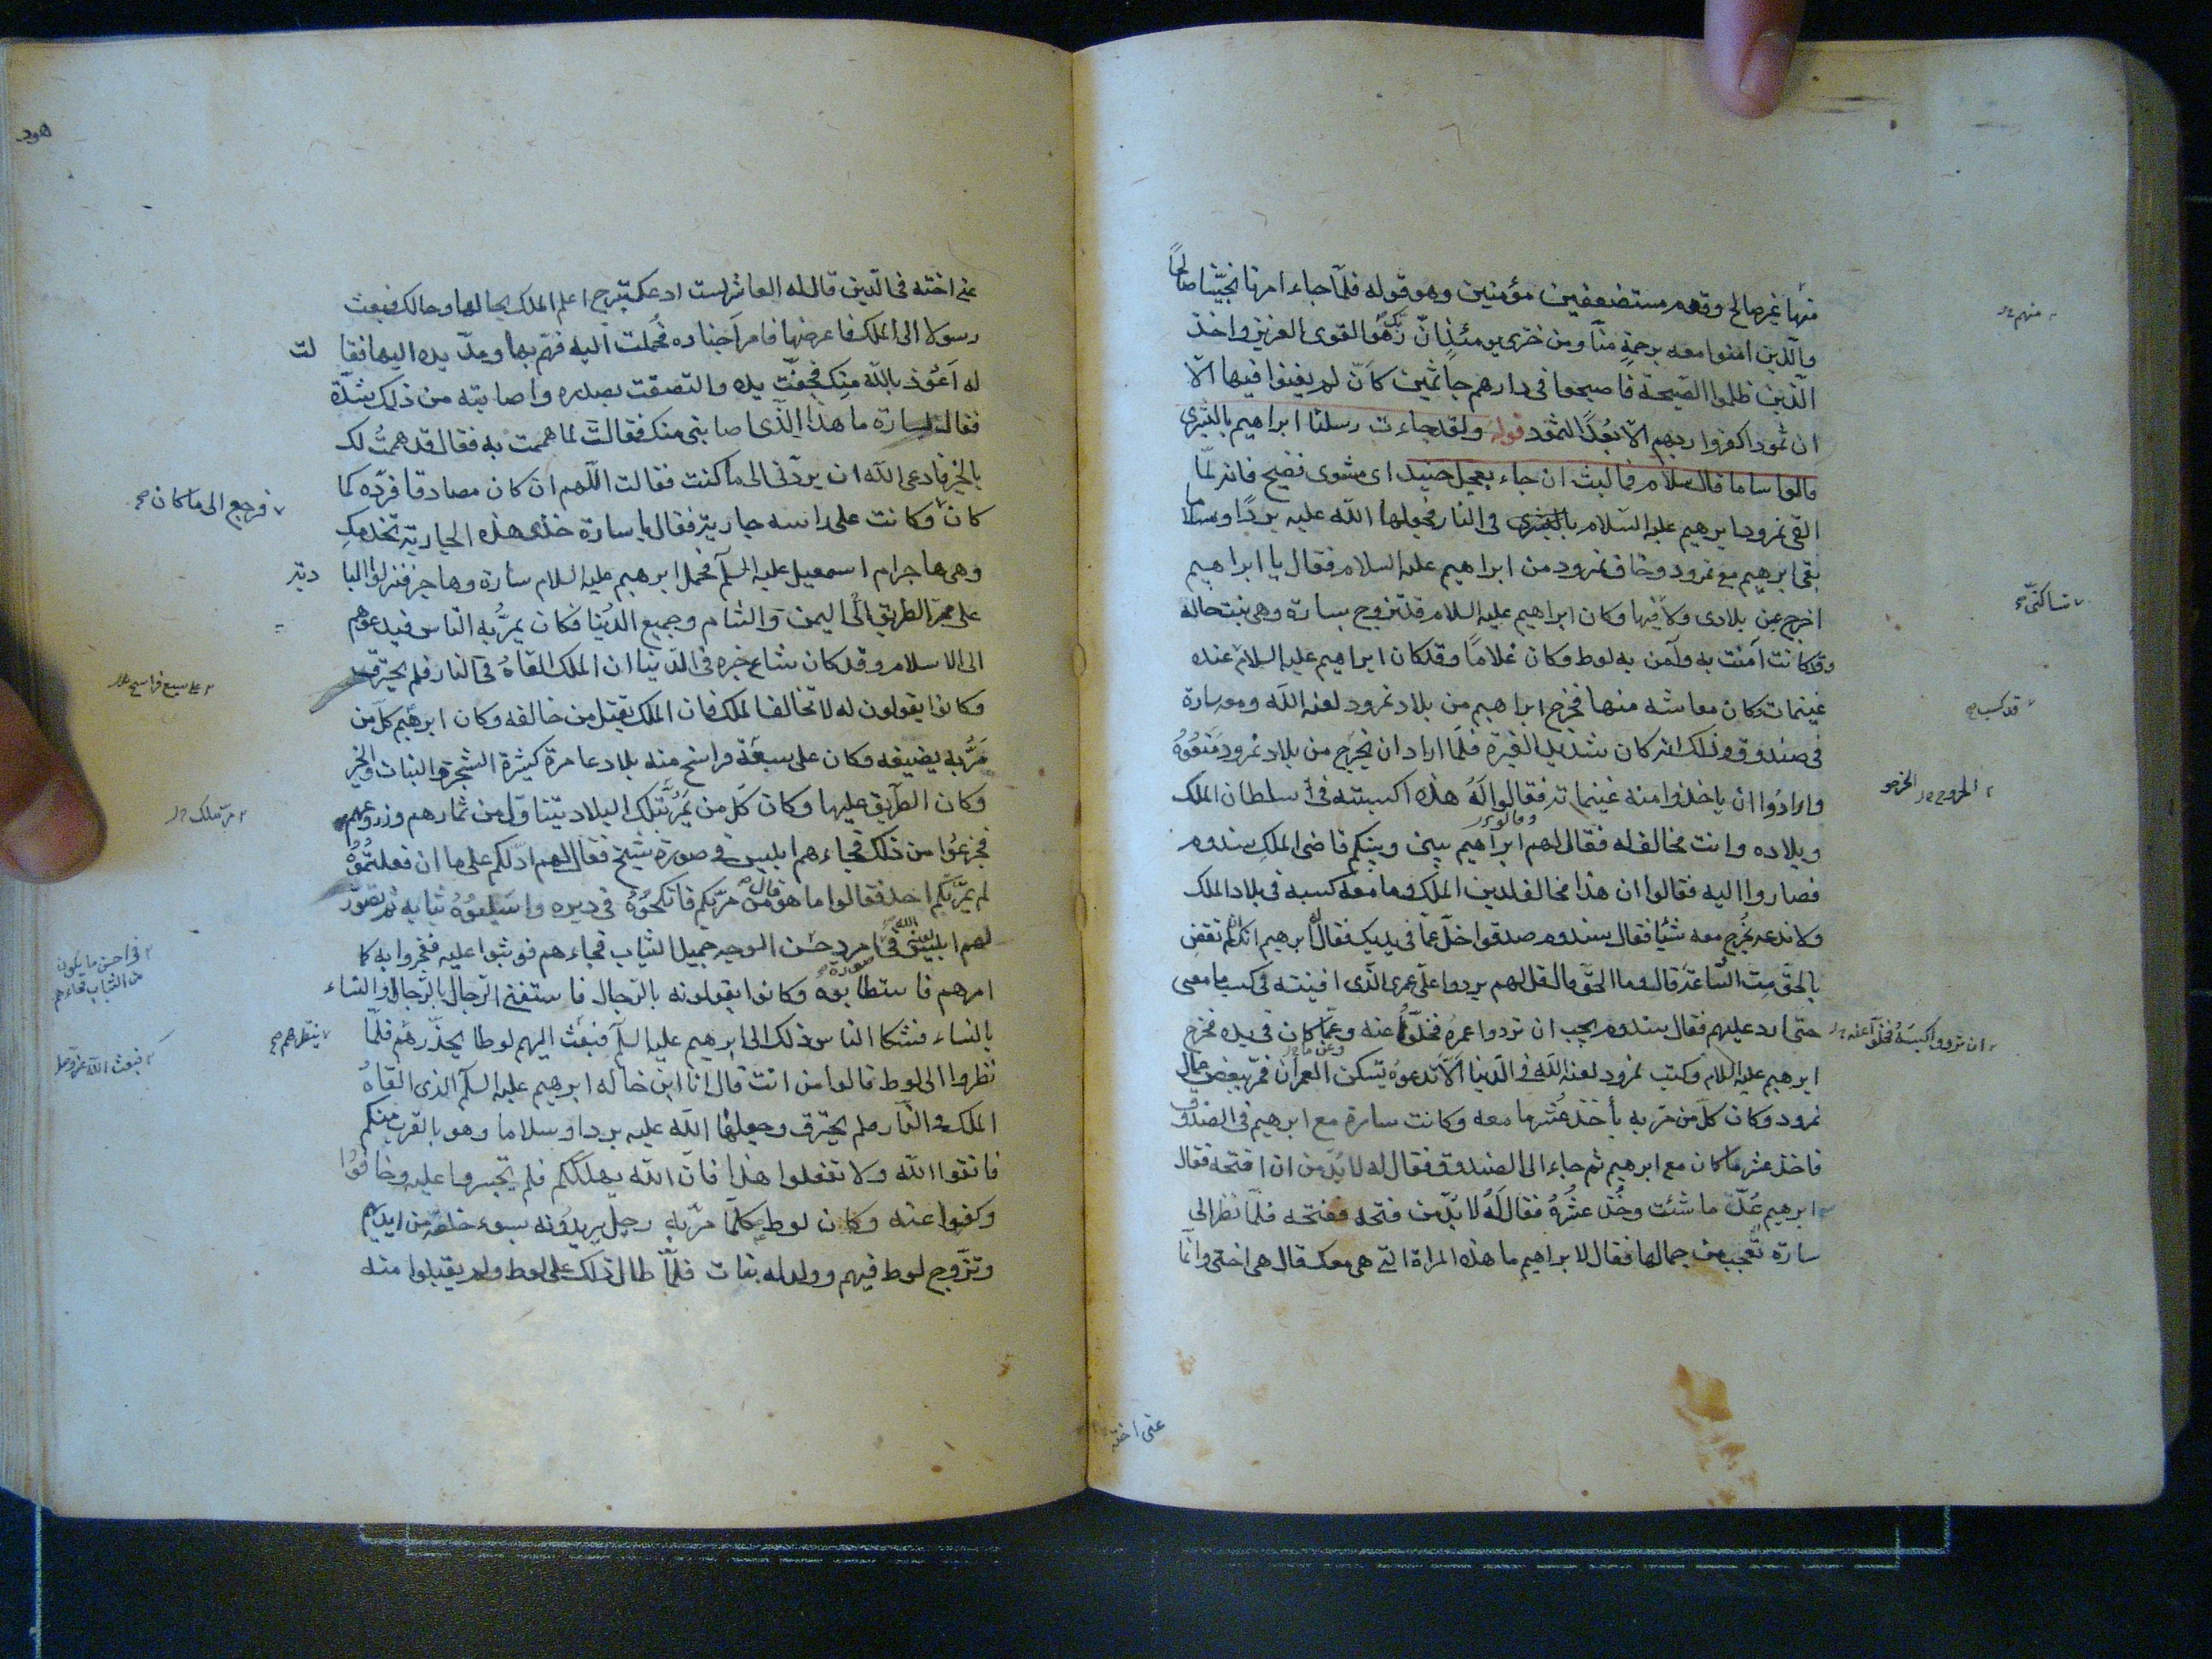 منها غير صالح وقوم مستضعفين مؤمنين وهو قوله فلما جاء امرنا نجينا صالحا
والذين امنوا معه برحمة منا ومن خزى يومئذ ان ربك هو القوى العزيز واخذ
الذين ظلموا الصيحة فاصبحوا فى دارهم جاثمين كان لم يغنوا فيها الا
ان ثمودا كفروا ربهم الا بعدا لثمود قوله ولقد جاءت رسلنا ابراهيم بالبشرى
قالوا سلاما قال سلام فما لبث ان جاء بعجل حنيذ اى مشوى نضيج فانه لما
القى نمرود ابرهيم عليه السلام فى النار فجعلها الله عليه بردا وسلاما
بقى ابرهيم مع نمرود وخاف نمرود من ابراهيم عليه السلام فقال يا ابراهيم
اخرج عن بلادى ولا فيها وكان ابراهيم عليه السلام قد تزوج بسارة وهى بنت خاله
وقد كانت آمنت به وآمن به لوط وكان غلاما وقد كان ابراهيم عليه السلام عنده
غنيمات وكان معاشه منها فخرج ابراهيم من بلاد نمرود لعنه الله ومعه سارة
فى صندوق وذلك انه كان شديد الغيرة فلما اراد ان يخرج من بلاد نمرود منعوه
وارادوا ان ياخذوا منه غنيماته فقالوا له هذه اكسبته فى سلطان الملك
وبلاده وانت مخالف له فقال لهم ابراهيم بينى وبينكم قاضى الملك سندوم
فصاروا اليه فقالوا ان هذا مخالف لدين الملك وما معه كسبه فى بلاد الملك
ولا ندعه يخرج معه شيئا فقال سندوم صدقوا خل عما فى يديك فقال ابرهيم انك ان لم تقض
بالحق مت الساعة قال وما الحق قال قل لهم يردوا على عمرى الذى افنيته فى كسب ما معى
حتى ارد عليهم فقال سندوم يجب ان تردوا عمره فخلوا عنه وعما كان فى يده فخرج
ابرهيم عليه السلام وكتب نمرود لعنه الله فى الدنيا الا تدعوه يسكن العمران فمر ببعض عمال
نمرود وكان كل من مر به يأخذ عشر ما معه وكانت سارة مع ابرهيم فى الصندوق
فاخذ عشر ما كان مع ابرهيم ثم جاء الى الصندوق فقال له لا بد من ان افتحه فقال
ابرهيم عده ما شئت وخذ عشره فقال له لا بد من فتحه ففتحه فلما نظر الى
سارة تعجب من جمالها فقال لابراهيم ما هذه المراة التى هى معك قال هى اختى وانما
منهم
قد كسب
عنى اخته
هود
عنى اخته فى الدين قال له العاشر لست ادعك تبرح اعلم الملك بحالها وحالك فبعث
رسولا الى الملك فاعرضها فامر اجناده فحملت اليه فهم بها ومد يده اليها فقالت
له اعوذ بالله منك فجفت يده والتصقت بصدره واصابته من ذلك شدة
فقال لسارة ما هذا الذى اصابنى منك فقالت لما هممت به فقال قد هممت لك
بالخير فادعى الله ان يردنى الى ما كنت فقالت اللهم ان كان صادقا فرده كما
كان وكانت على راسه جارية فقال يا سارة خذى هذه الجارية تخدمك
وهى هاجر ام اسمعيل عليه السلم فحمل ابرهيم عليه السلام سارة وهاجر فنزلوا البادية
على ممر الطريق الى اليمن والشام وجميع الدنيا فكان يمر به الناس فيدعوهم
الى الاسلام وقد كان شاع خبره فى الدنيا ان الملك القاه فى النار فلم يحترق
وكانوا يقولون له لا تخالف الملك فان الملك يقتل من خالفه وكان ابرهيم كل من
مر به يضيفه وكان على سبعة فراسخ منه بلاد عامرة كثيرة الشجرة والنبات والخير
وكان الطريق عليها وكان كل من يمر بتلك البلاد يتناول من ثمارهم وزروعهم
فجزعوا من ذلك فجاءهم ابليس فى صورة شيخ فقال لهم ادلكم على ما ان فعلتموه
لم يمر بكم احد فقالوا ما هو قال من مر بكم فانكحوه فى دبره واسلبوه ثيابه ثم تصور
لهم ابليس فى صورة امرد حسن الوجه جميل الثياب فجاءهم فوثبوا عليه ففجروا به كما
امرهم فاستطابوه وكانوا يفعلونه بالرجال فاستغنى الرجال بالرجال والنساء
بالنساء فشكا الناس ذلك الى ابرهيم عليه السلم فبعث اليهم لوطا يحذرهم فلما
نظروا الى لوط قالوا من انت قال انا ابن خاله ابرهيم عليه السلم الذى القاه
الملك فى النار فلم يحترق وجعلها الله عليه بردا وسلاما وهو بالقرب منكم
فاتقوا الله ولا تفعلوا هذا فان الله يهلككم فلم يجسروا عليه وخافوا
وكفوا عنه وكان لوط كلما مر به رجل يريدونه بسوء خلصه من ايديهم
وتزوج لوط فيهم وولد له بنات فلما طال ذلك على لوط ولم يقبلوا منه
فرجع الى ما كان
مر بتلك
فى احسن ما يكون
من الثياب فجاءهم
ينظرهم
فبعث الله عز وجل